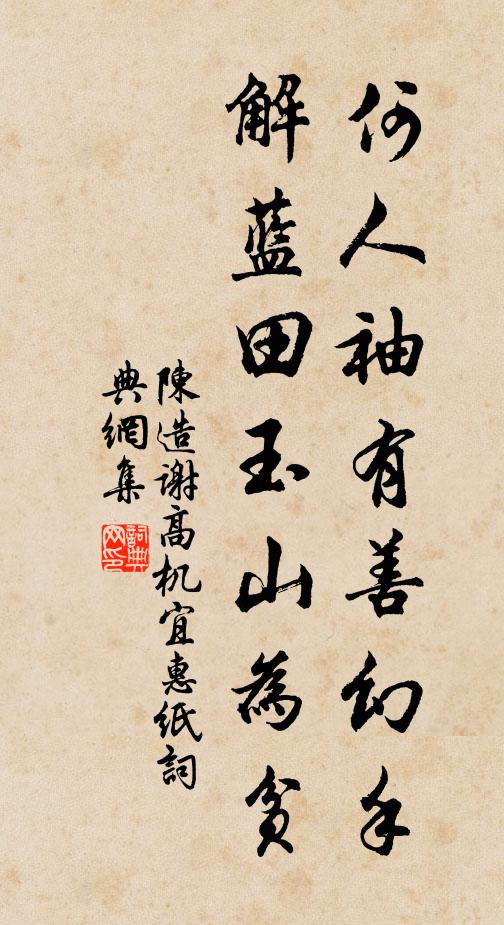 何人袖有善幻手
解藍田玉山為貧
陳造謝高机宜惠紙詞
典網集
詞典
网印